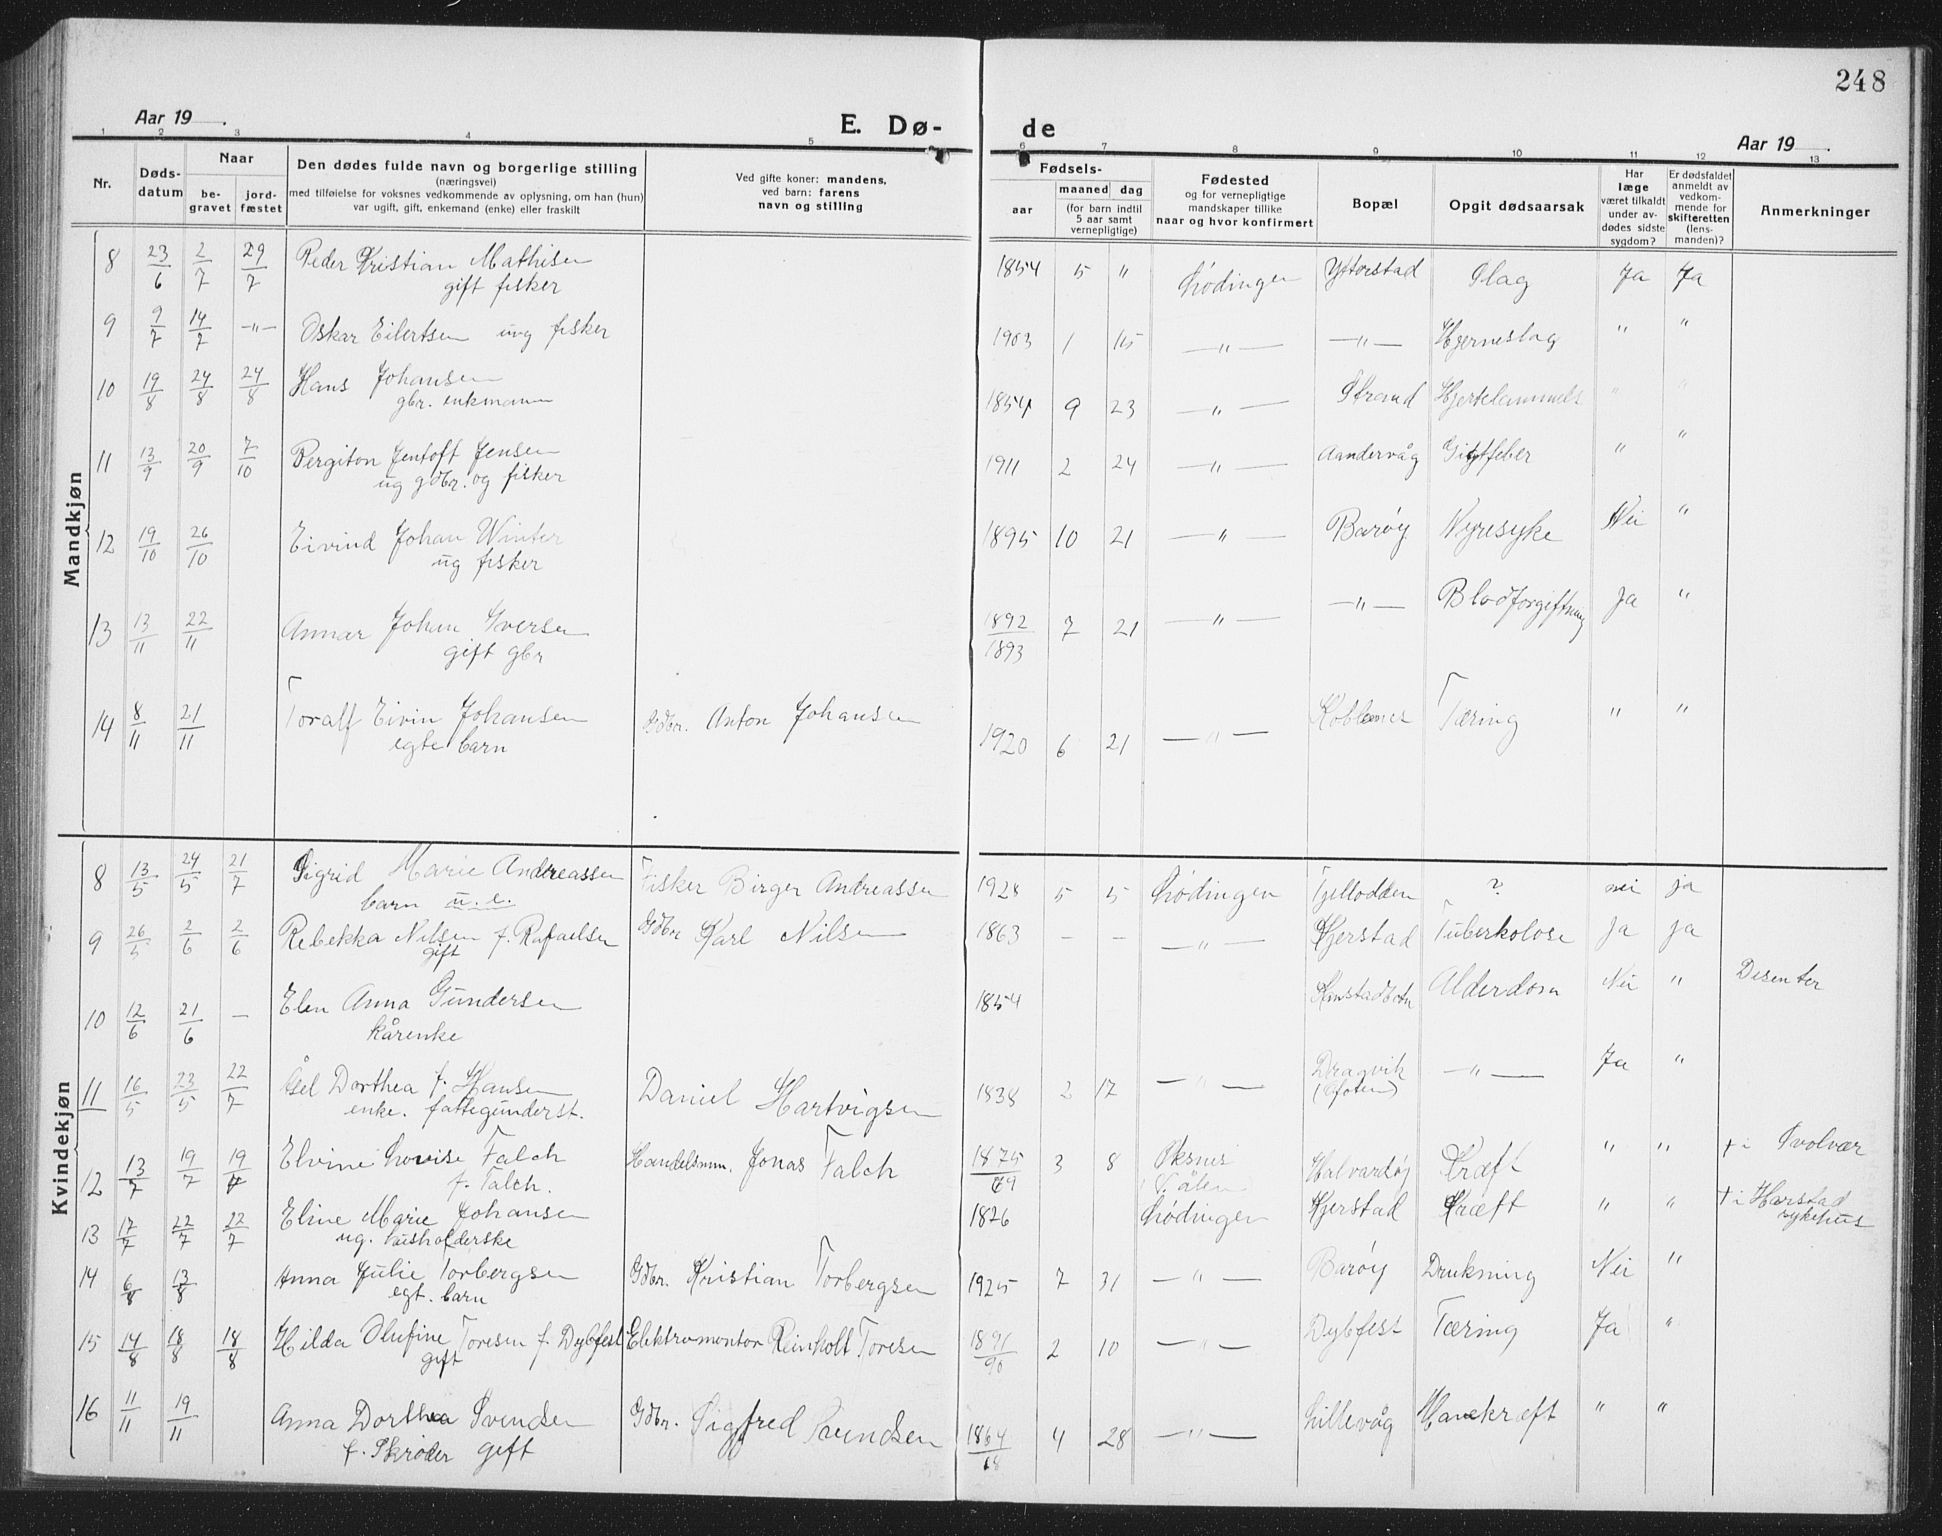 248
Aar 19 .
E. Dø-
de
Aar 19 .
1 2 3 4 5 6 7 8 9 10 11 12 13
Nr.
Døds-
datum
Naar
be-
gravet
jord-
fæstet
Den dødes fulde navn og borgerlige stilling
(næringsvei)
med tilføielse for voksnes vedkommende av oplysning, om han (hun)
var ugift, gift, enkemand (enke) eller fraskilt
Ved gifte koner: mandens,
ved barn: farens
navn og stilling
Fødsels-
aar
maaned
dag
(for barn indtil
5 aar samt
vernepligtige)
Fødested
og for vernepligtige
mandskaper tillike
naar og hvor konfirmert
Bopæl
Opgit dødsaarsak
Har
læge
været tilkaldt
under av-
dødes sidste
sygdom?
Er dødsfaldet
anmeldt av
vedkom-
mende for
skifteretten
(lens-
manden)?
Anmerkninger
Mandkjøn
8 23/6 2/7 29/7 Peder Kristian Mathisen 1854 5 " Lødingen Ytterstad Slag Ja Ja
gift fisker
9 9/7 14/7 —"— Oskar Eilertsen ug fisker 1903 1 15 —"— —"— Hjerneslag " "
10 19/8 24/8 24/8 Hans Johansen 1854 9 23 —"— Strand Hjertelammels " "
gbr. enkmann
11 13/9 20/9 7/10 Pergiton Jentoft Jensen 1911 2 24 —"— Aandervåg Gigtfeber " "
ug gdbr. og fisker
12 19/10 26/10 Eivind Johan Winter 1895 10 21 —"— Barøy Nyresyke Nei "
ug fisker
13 13/11 22/11 Annar Johan Iversen 1892/1893 7 21 —"— —"— Blodforgiftning Ja "
gift gbr
14 8/11 21/11 Toralf Eivin Johansen Gdbr. Anton Johansen 1920 6 21 —"— Koblenes Tæring " "
egte barn
Kvindekjøn
8 13/5 24/5 21/7 Sigrid Marie Andreassen Fisker Birger Andreassen 1928 5 5 Lødingen Tjellodden ? nei ja
barn u. e.
9 26/5 2/6 2/6 Rebekka Nilsen f. Rafaelsen Gdbr Karl Nilsen 1863 — — —"— Hjerstad Tuberkolose Ja ja
gift
10 12/6 21/6 — Elen Anna Gundersen 1854 Alderdom Nei " Desenter
kårenke
11 16/5 23/5 22/7 Dorthea f. Hansen Daniel Hartvigsen 1838 2 17 —"— Dragvik —"— Ja "
enke. fattigunderst. (Ofoten)
12 13/7 19/7 19/7 Elvine Lovise Falch Handelsmn. Jonas Falch 1875/69 3 8 Øksnes Halvardøy Kræft " " † i Svolvær
f. Falch.
13 17/7 22/7 22/7 Eline Marie Johansen 1826 Lødingen Hjerstad Kræft " " † i Harstad
ug. husholderske sykehus
14 6/8 13/8 Anna Julie Torbergsen Gdbr. Kristian Torbergsen 1925 7 31 —"— Barøy Drukning Nei "
egt. barn
15 14/8 18/8 18/8 Hilda Olufine Toresen f. Dybfest Elektromontør Reinholt Toresen 1891/90 2 10 —"— Dybfest Tæring Ja "
gift
16 11/11 19/11 Anna Dorthea Svendsen Gdbr. Sigfred Svendsen 1864/68 4 28 —"— Lillevåg Mavekræft " "
f. Skrøder gift